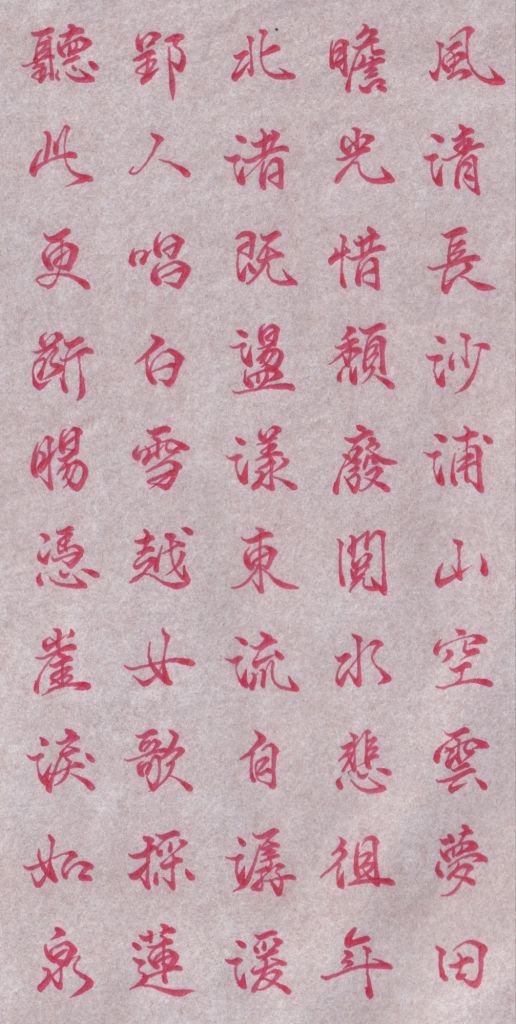 風清長沙浦山空雲夢田
瞻光惜頹廢閱水悲徂年
北渚既盪漾東流自潺湲
郢人唱白雪越女歌採蓮
聽此更斷腸憑崖淚如泉